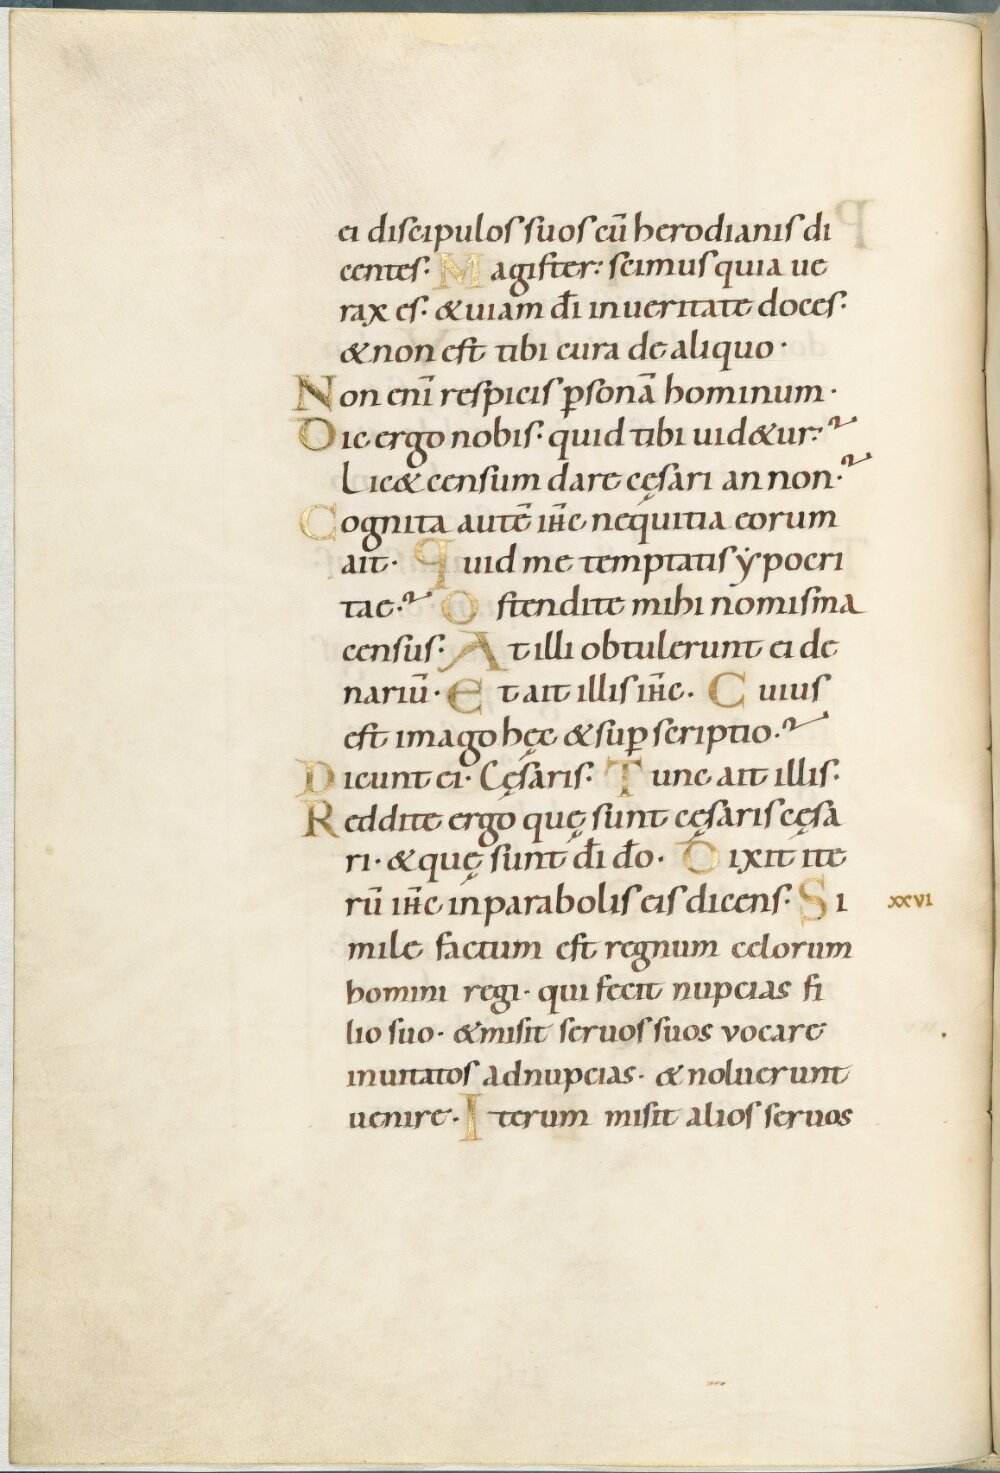 ei discipulos suos cū herodianis di
centes· Magister: scimus quia ue
rax es· &uiam d̄i in ueritate doces·
&non est tibi cura de aliquo·
Non enī respicis p̱sonā hominum·
Dic ergo nobis· quid tibi uid&ur:
Lic& censum dare cęsari an non·
Cognita autē ih̄c nequitia eorum
ait· Quid me temptatis ẏpocri
tae· Ostendite mihi nomisma
census· At illi obtulerunt ei de
nariū· Et ait illis ih̄c· Cuius
est imago hęc &sup̱ scriptio·
Dicunt ei· Cęsaris· Tunc ait illis·
Reddite ergo quę sunt cęsaris cęsa
ri· &quę sunt d̄i d̄o· Dixit ite
rū ih̄c in parabolis eis dicens· Si
xxvi
mile factum est regnum celorum
homini regi· qui fecit nupcias fi
lio suo· &misit seruos suos vocare
inuitatos ad nupcias· &noluerunt
uenire· Iterum misit alios seruos